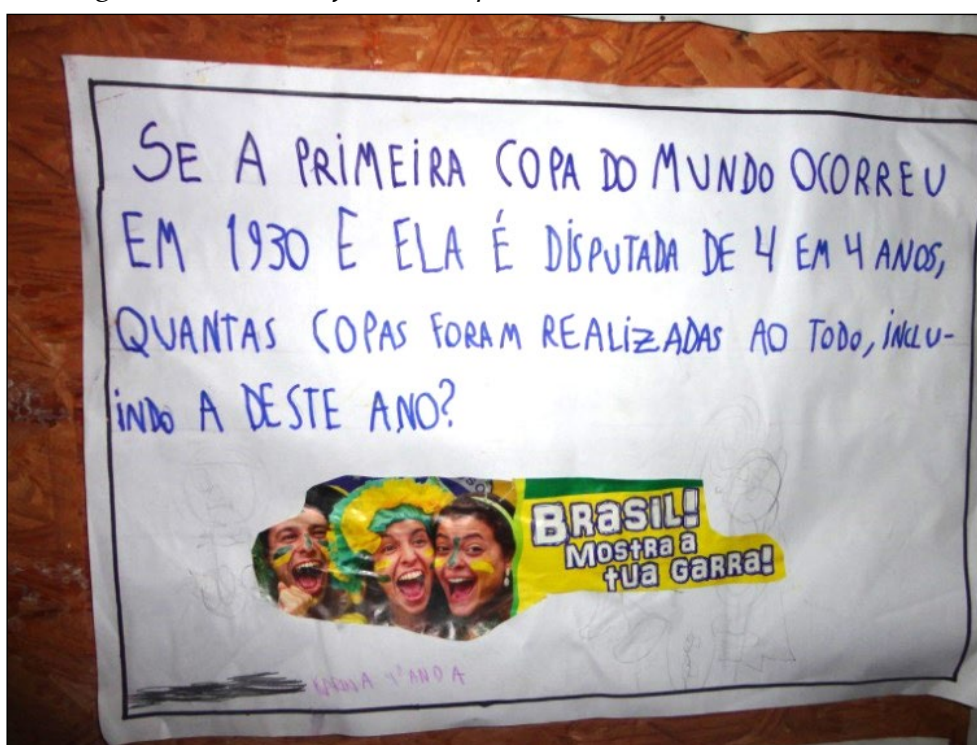 SE A PRIMEIRA COPA DO MUNDO OCORREU
EM 1930 E ELA É DISPUTADA DE 4 EM 4 ANOS,
QUANTAS COPAS FORAM REALIZADAS AO TODO, INCLU-
INDO A DESTE ANO?
BRASIL!
MOSTRA A
TUA GARRA!